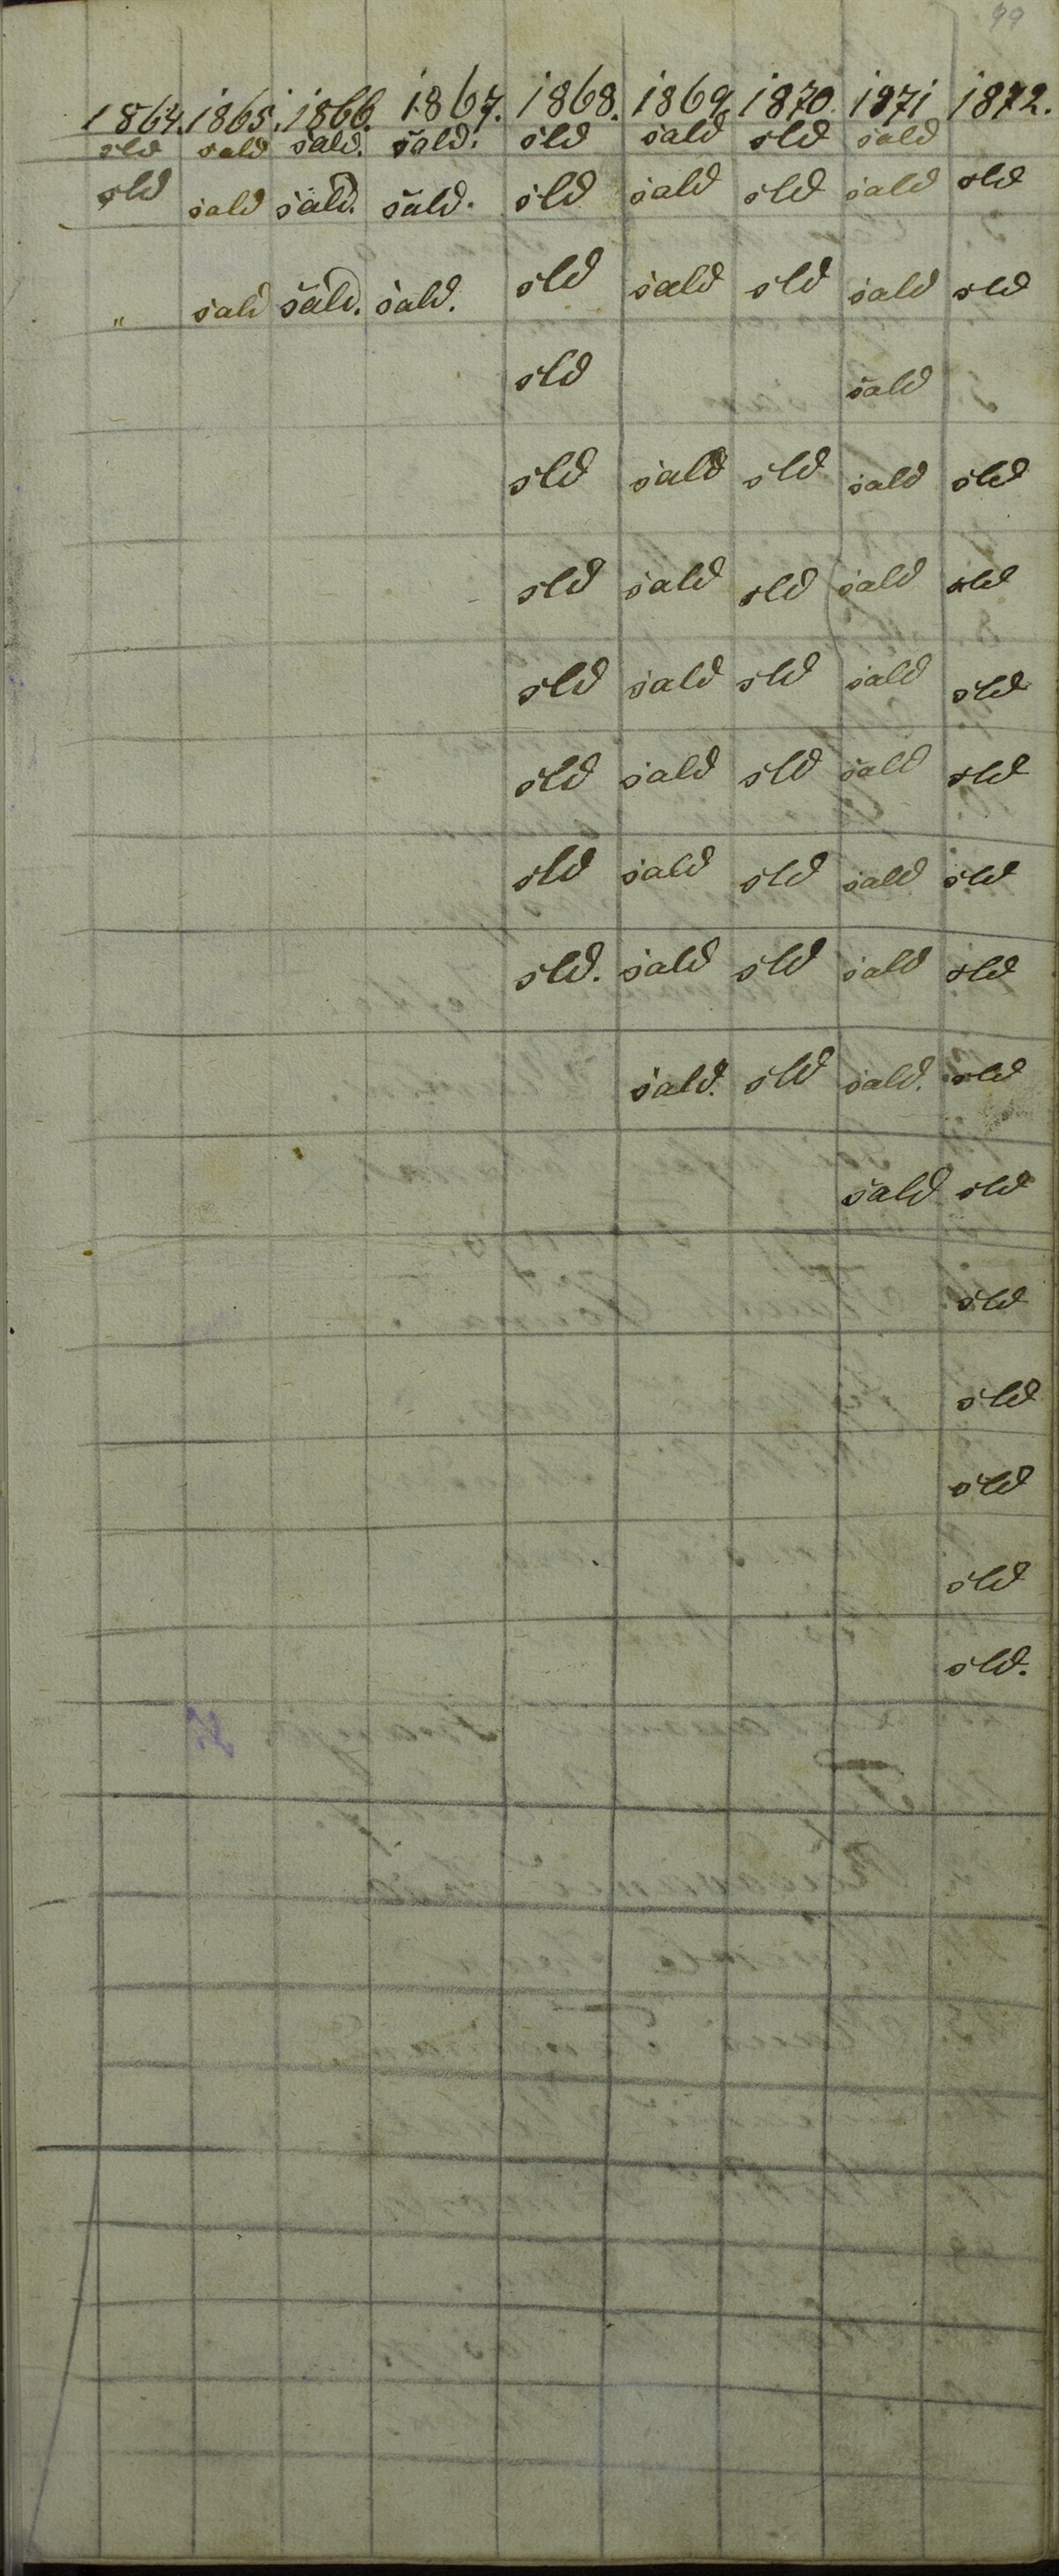 99
1864. 1865. 1866. 1867. 1868. 1869. 1870. 1871 1872.
sld sald sald. sald. sld sald sld sald
sld sald sald. sald. sld sald sld sald sld
„ sald sald. sald. sld sald sld sald sld
sld sald
sld sald sld sald sld
sld sald sld sald sld
sld sald sld sald sld
sld sald sld sald sld
sld sald sld sald sld
sld. sald sld sald sld
sald. sld sald. sld
sald sld
sld
sld
sld
sld
sld.